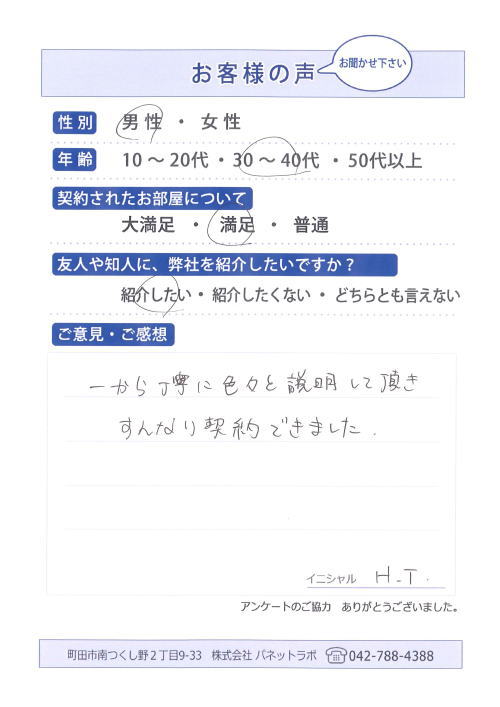 お客様の声
お聞かせ下さい
性別
男性 ・ 女性
年齢
10～20代 ・ 30～40代 ・ 50代以上
契約されたお部屋について
大満足 ・ 満足 ・ 普通
友人や知人に、弊社を紹介したいですか？
紹介したい ・ 紹介したくない ・ どちらとも言えない
ご意見・ご感想
一から丁寧に色々と説明して頂き
すんなり契約できました.
イニシャル H.T.
アンケートのご協力 ありがとうございました。
町田市南つくし野２丁目9-33 株式会社 バネットラボ ☎042-788-4388